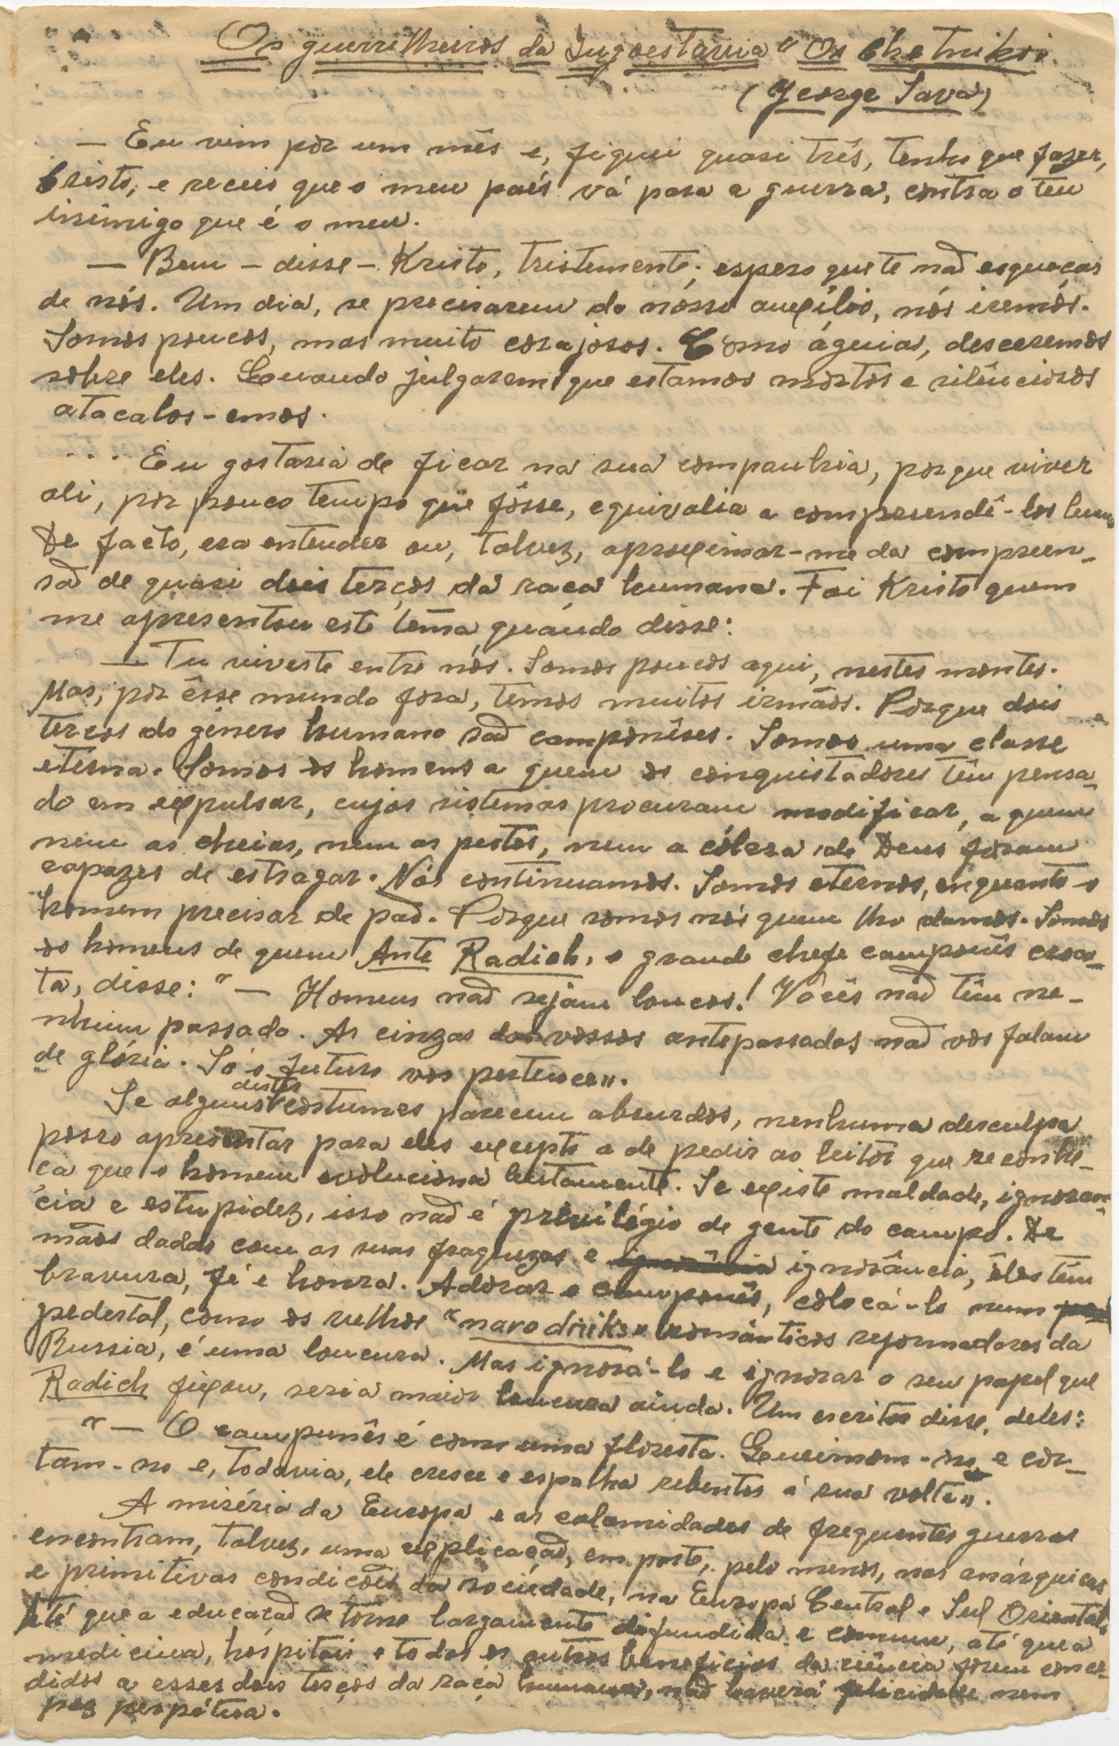 Os guerrilheiros da Jugoeslávia "Os Chetnikoi
(George Sava)
— Eu vim por um mês e, fiquei quasi três, tenho que fazer,
Cristo, e receio que o meu país vá para a guerra, contra o teu
inimigo que é o meu.
— Bem – disse – Kristo, tristemente; espero que te não esqueças
de nós. Um dia, se precisarem do nósso auxílio, nós iremos.
Somos poucos, mas muito corajosos. Como águias, desceremos
sobre eles. Quando julgarem que estamos mortos e silênciosos
atacalos-emos.
... Eu gostaria de ficar na sua companhia, porque viver
ali, por pouco tempo que fôsse, equivalia a compreendê-los bem.
De facto, era entender ou, talvez, aproximar-me da compreen-
são de quasi dois terços da raça humana. Foi Kristo quem
me apresentou este têma quando disse:
— Tu viveste entre nós. Somos poucos aqui, nestes montes.
Mas, por êsse mundo fora, temos muitos irmãos. Porque dois
terços do género humano são camponêses. Somos uma classe
eterna. Somos os homens a quem os conquistadores têm pensa-
do em expulsar, cujos sistemas procuram modificar, a quem
nem as cheias, nem as pestes, nem a cólera de Deus foram
capazes de estragar. Nós continuamos. Somos eternos, enquanto o
homem precisar de pão. Porque somos nós quem lho damos. Somos
os homens de quem Ante Radich, o grande chefe camponês croa-
ta, disse: "— Homens não sejam loucos! Vocês não têm ne-
nhum passado. As cinzas dos vossos antepassados não vos falam
de glória. Só o futuro vos pertence".
Se alguns destes costumes parecem absurdos, nenhuma desculpa
posso apresentar para eles excepto a de pedir ao leitor que reconhe-
ça que o homem evoluciona lentamente. Se existe maldade, ignorân-
cia e estupidez, isso não é privilégio de gente do campo. De
mãos dadas com as suas fraquezas e ignorância, êles têm
bravura, fé e honra. Adorar o camponês, colocá-lo num
pedestal, como os velhos "narodniks" românticos reformadores da
Russia, é uma loucura. Mas ignorá-lo e ignorar o seu papel que
Radich fixou, seria maior loucura ainda. Um escritor disse, deles:
"— O camponês é como uma floresta. Queimam-no e cor-
tam-no e, todavia, ele cresce e espalha rebentos á sua volta".
A miséria da Europa e as calamidades de frequentes guerras
encontram, talvez, uma explicação, em parte, pelo menos, nas anárquicas
e primitivas condições da sociedade, na Europa Central e Sul Oriental.
Até que a educação se torne largamente difundida e comum, até que a
medicina, hospitais e todos os outros beneficios da ciência forem conce-
didos a esses dois terços da raça humana, não haverá felicidade nem
paz perpétua.